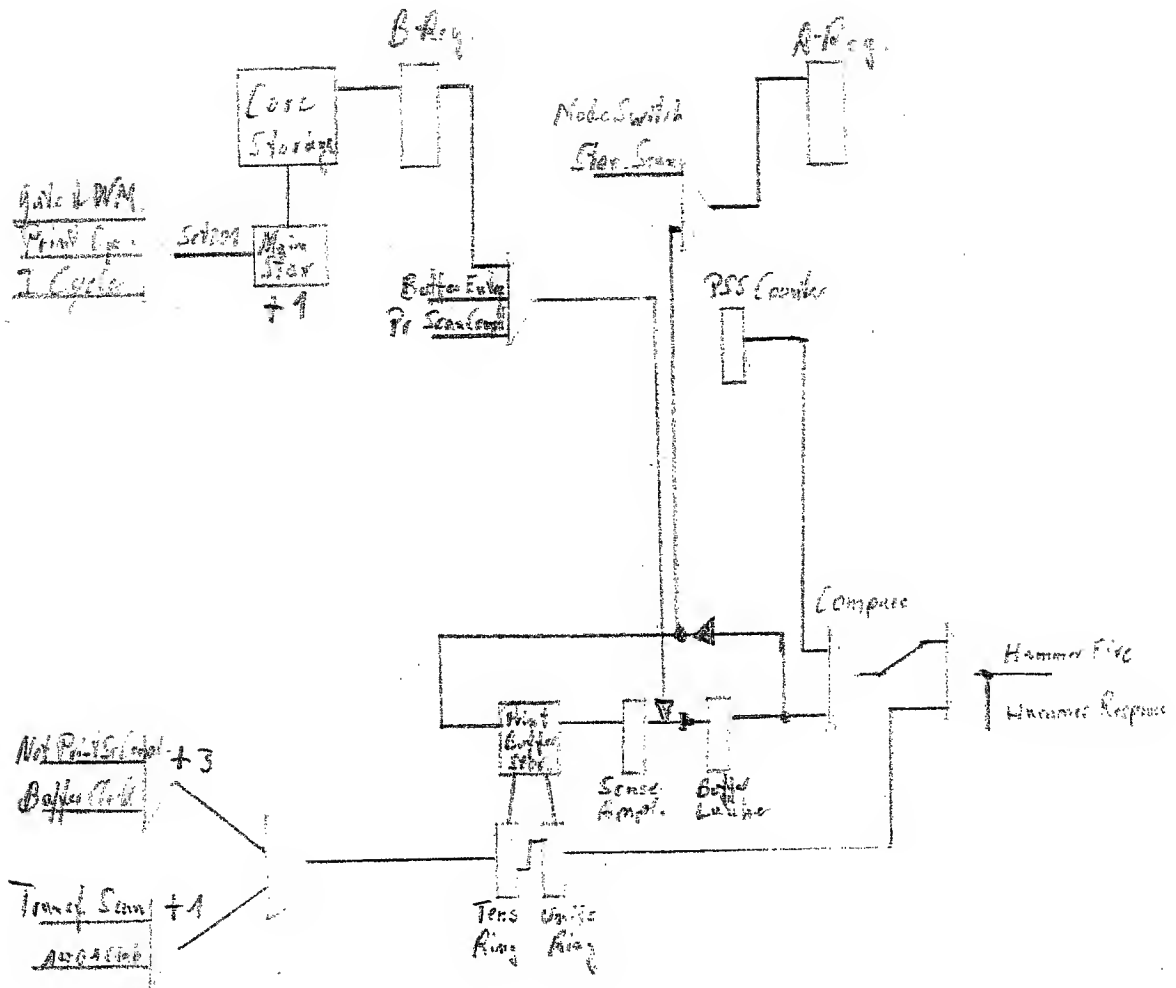 B-Reg.
A-Reg.
Core
Storage
Mode Switch
Stor. Scan
Gate WM
Print Cy.
I Cycle
Set 201
Main
Star
+1
Buffer Enter
Pr Scan
PSS Counter
Compare
Hammer Fire
Hammer Response
Print
Buffer
Stor.
Not Print
+3
Buffer
Sense
Ampl.
Buffer
Transf. Scan
+1
Tens
Ring
Units
Ring